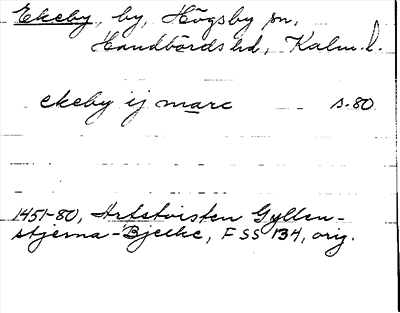 Ekeby, by, Högsby sn,
Handbörds hd, Kalm. l.
ekeby ij marc s. 80
1451-80, Arvstvisten Gyllen-
stjerna-Bjelke, FSS 134, orig.